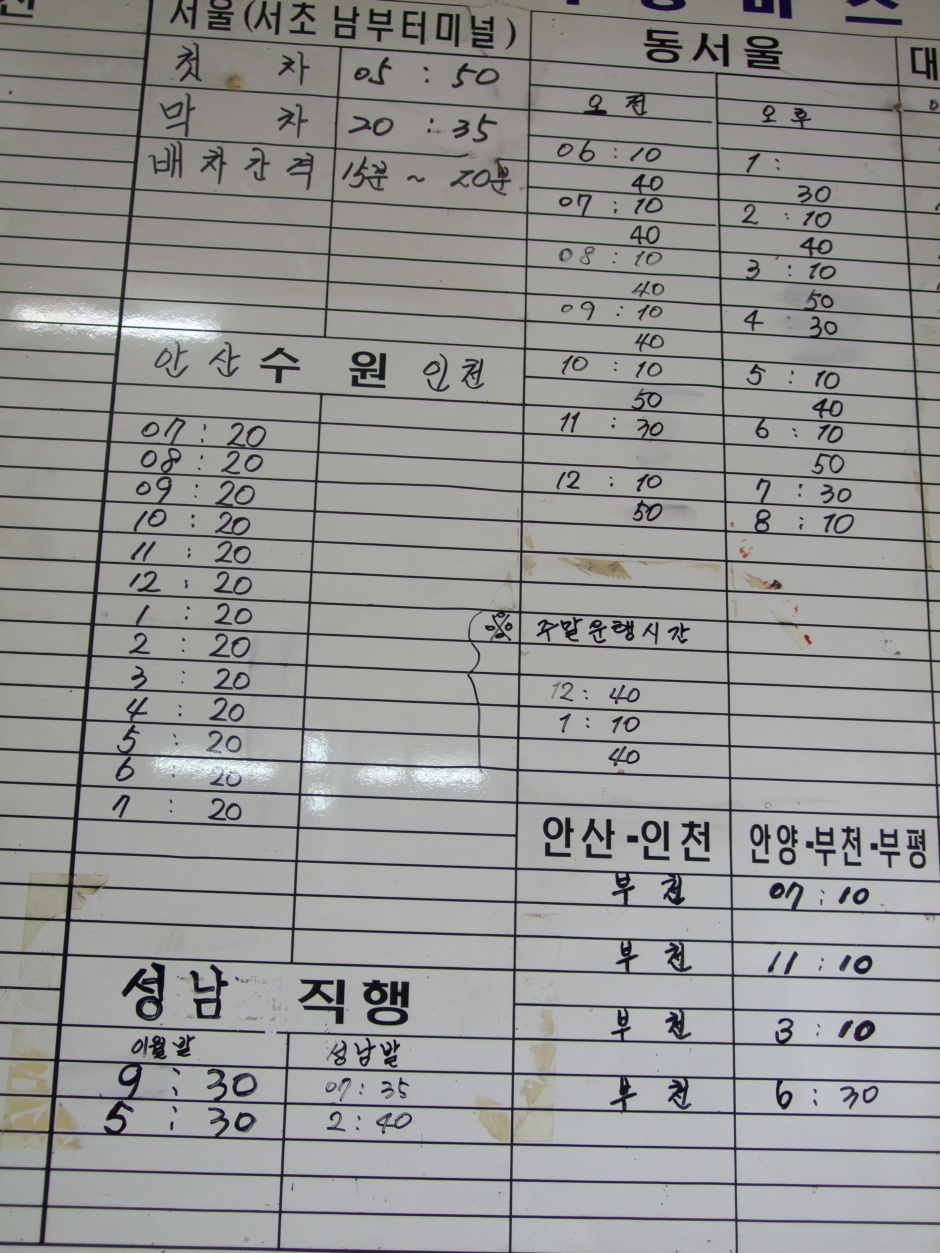 서울(서초 남부터미널)
첫 차 05 : 50
막 차 20 : 35
배차간격 15분 ~ 20분
안산 수원 인천
07 : 20
08 : 20
09 : 20
10 : 20
11 : 20
12 : 20
1 : 20
2 : 20
3 : 20
4 : 20
5 : 20
6 : 20
7 : 20
성남 직행
이월발 성남발
9 : 30 07 : 35
5 : 30 2 : 40
동서울
오전 오후
06 : 10 1 :
40 30
07 : 10 2 : 10
40 40
08 : 10 3 : 10
40 50
09 : 10 4 : 30
40
10 : 10 5 : 10
50 40
11 : 30 6 : 10
50
12 : 10 7 : 30
50 8 : 10
※ 주말운행시간
12 : 40
1 : 10
40
안산-인천 안양-부천-부평
부천 07 : 10
부천 11 : 10
부천 3 : 10
부천 6 : 30
대